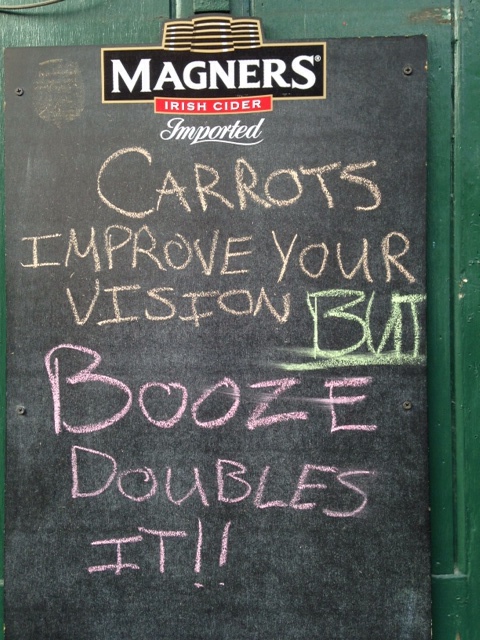 MAGNERS®
IRISH CIDER
Imported
CARROTS
IMPROVE YOUR
VISION BUT
BOOZE
DOUBLES
IT!!